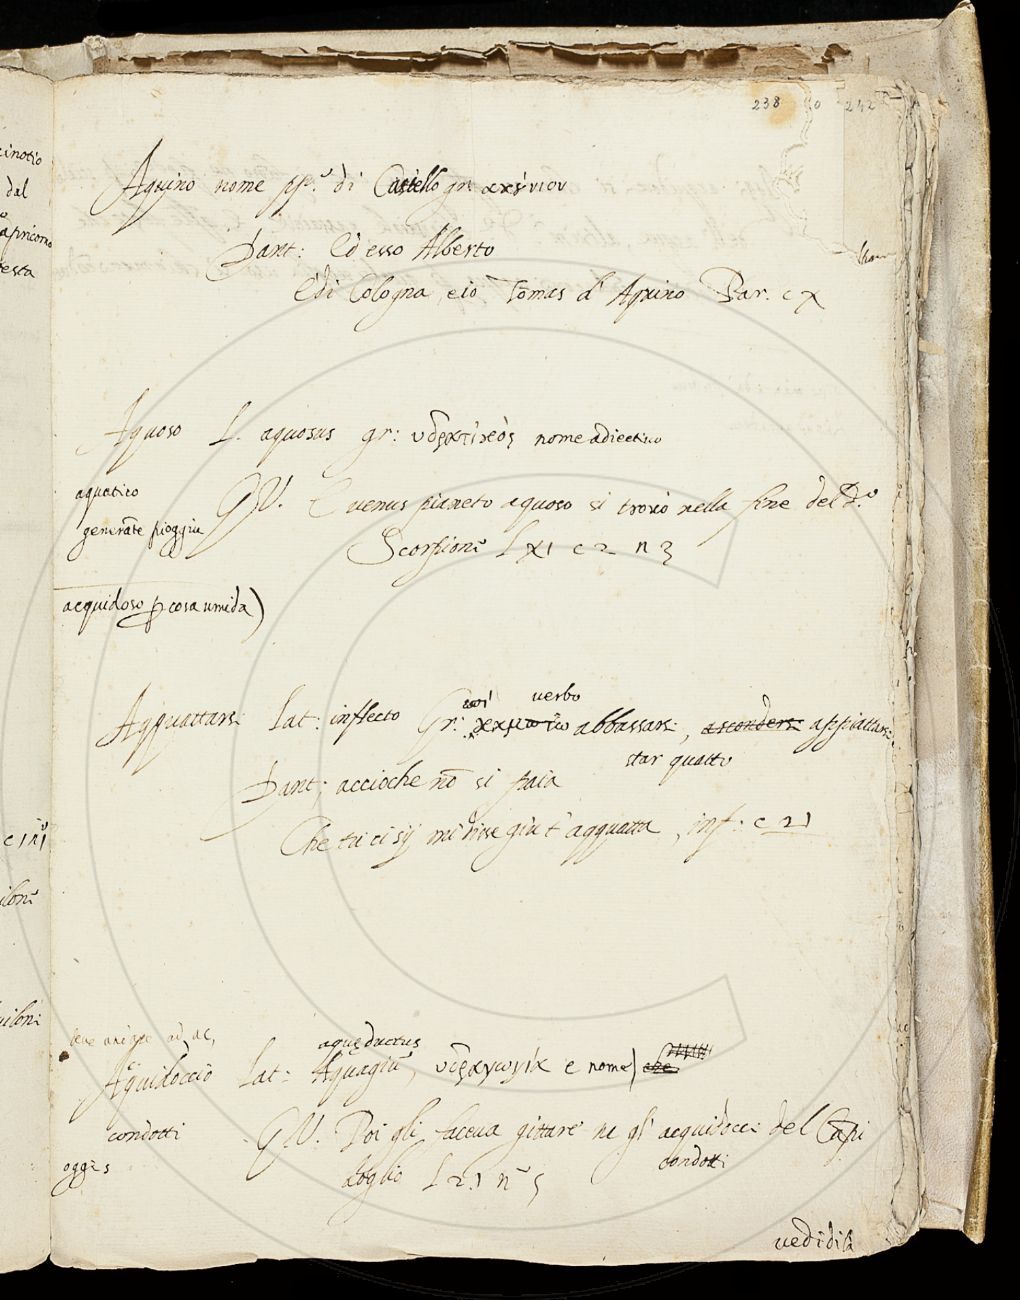 238 242
Aquino nome pp.º di Castello gr: ακύνιον
Dant: Ed esso Alberto
È di Cologna, e io Tõmas d'Aquino Par. c x
Aquoso L. aquosus gr: υδρατικὸς nome adiectiuo
aquatico
generãte pioggia
GV. E uenus pianeto aquoso si trouò nella fine del D.º
Scorpione L XI c 2 n 3
acquidoso p cosa umida)
Aqquattare Lat: inflecto Gr: verbo abbassare, ascondere appiattare.
star quatto
Dant; accioche nõ si paia
Che tu ci sij mi disse giu t'aqquatta, inf: c 21
ad, ac,
Aquidoccio Lat: Aquagiũ, aquęductus υδραγωγία e nome)
condotti
GV. Poi gli faceua gittare ne gl' acquidocci del Cãpi
condotti
doglio L 21 nº 5
oggi s
vedi di là